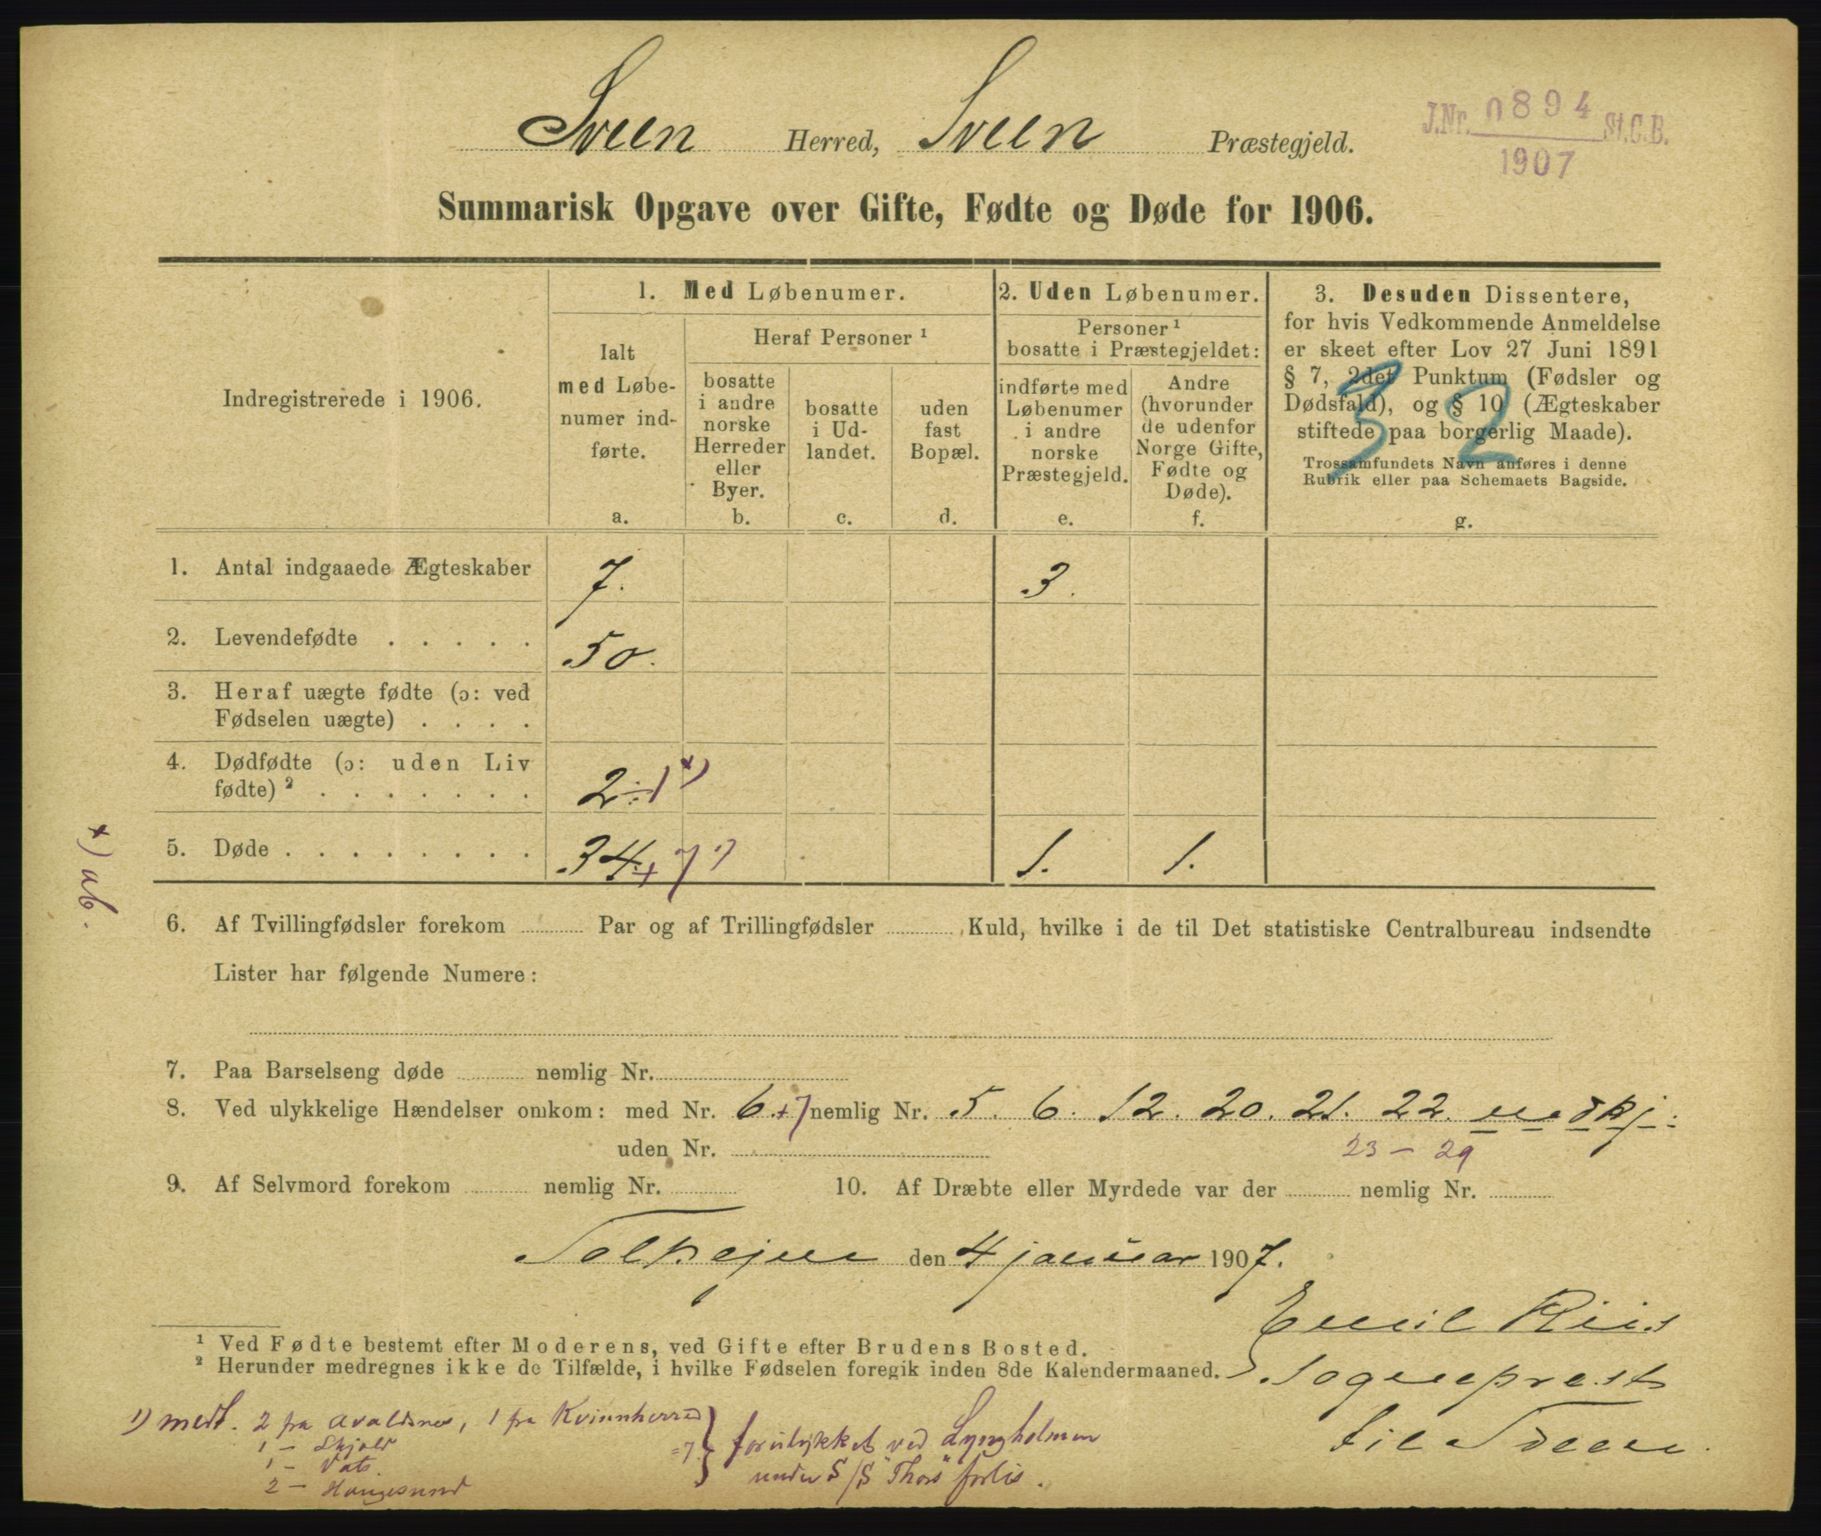 Sveen Herred, Sveen Præstegjeld.
J.Nr. 0894 St.C.B.
1907
Summarisk Opgave over Gifte, Fødte og Døde for 1906.
Indregistrerede i 1906.
1. Med Løbenumer.
Ialt
med Løbe-
numer ind-
førte.
a.
Heraf Personer ¹
bosatte
i andre
norske
Herreder
eller
Byer.
b.
bosatte
i Ud-
landet.
c.
uden
fast
Bopæl.
d.
2. Uden Løbenumer.
Personer ¹
bosatte i Præstegjeldet:
indførte med
Løbenumer
i andre
norske
Præstegjeld.
e.
Andre
(hvorunder
de udenfor
Norge Gifte,
Fødte og
Døde).
f.
3. Desuden Dissentere,
for hvis Vedkommende Anmeldelse
er skeet efter Lov 27 Juni 1891
§ 7, 2det Punktum (Fødsler og
Dødsfald), og § 10 (Ægteskaber
stiftede paa borgerlig Maade).
Trossamfundets Navn anføres i denne
Rubrik eller paa Schemaets Bagside.
g.
32
1. Antal indgaaede Ægteskaber 7. 3.
2. Levendefødte . . . . . 50.
3. Heraf uægte fødte (ɔ: ved
Fødselen uægte) . . . .
4. Dødfødte (ɔ: uden Liv
fødte) ² . . . . . . . 2 ÷ 1 +)
5. Døde . . . . . . . . . 34. + 7 1) 1. 1.
+) ab.
6. Af Tvillingfødsler forekom Par og af Trillingfødsler Kuld, hvilke i de til Det statistiske Centralbureau indsendte
Lister har følgende Numere:
7. Paa Barselseng døde nemlig Nr.
8. Ved ulykkelige Hændelser omkom: med Nr. 6. +7 nemlig Nr. 5. 6. 12. 20. 21. 22.
23 - 29
uden Nr.
9. Af Selvmord forekom nemlig Nr. 10. Af Dræbte eller Myrdede var der nemlig Nr.
den 4 januar 1907.
Emil Riis
Sogneprest
til Sveen.
¹ Ved Fødte bestemt efter Moderens, ved Gifte efter Brudens Bosted.
² Herunder medregnes ikke de Tilfælde, i hvilke Fødselen foregik inden 8de Kalendermaaned.
1) medt. 2 fra Avaldsnes, 1 fra Kvinnherred
1 - Skjold
1 - Vats.
2 - Haugesund
=7. forulykket ved Lyngholmen
under S/S "Thors" forlis.